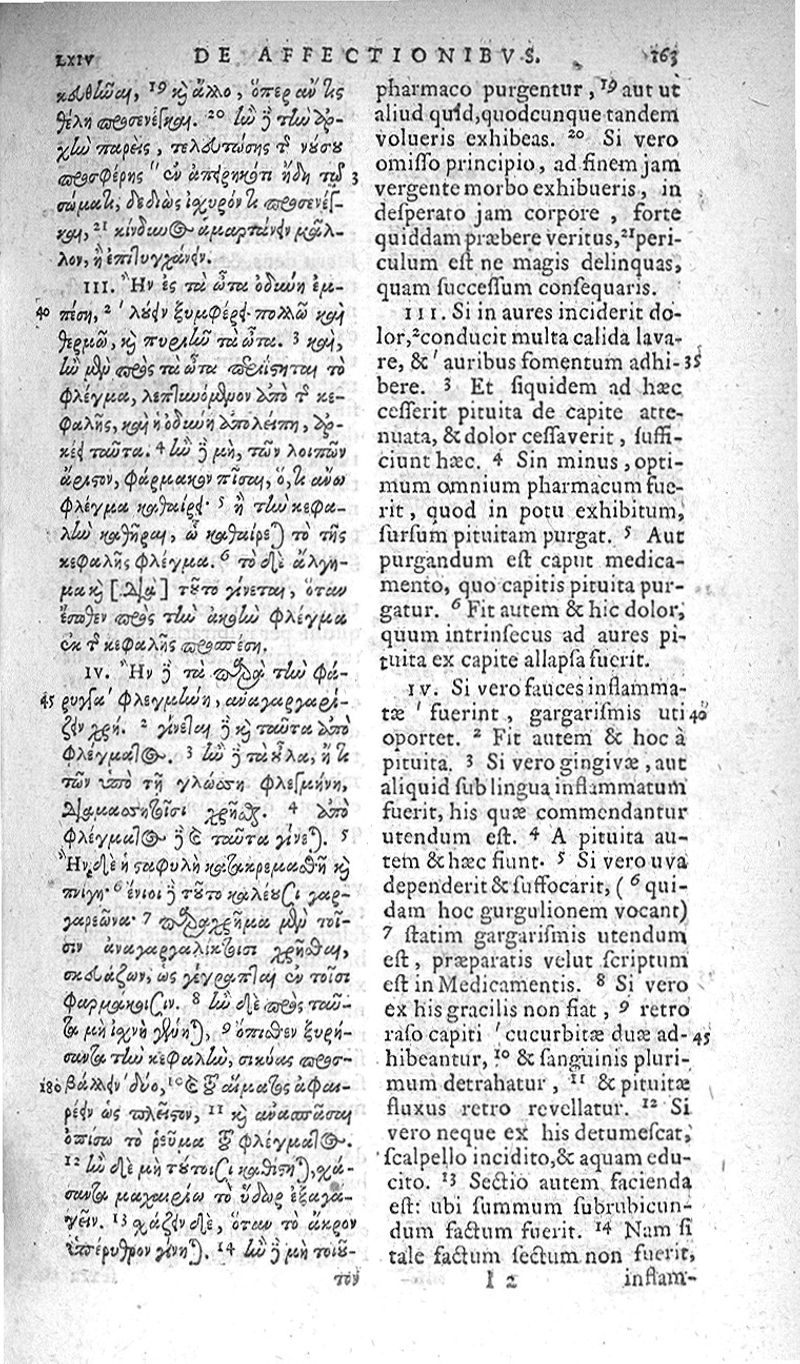 LXIV DE AFFECTIONIBVS. 163
καθῶσαι, 19 κ̀ ἄλλο, ὅπερ ἄν τις
θέλῃ προσενέγκαι. 20 ἢν ἢ τὴν ἀρ-
χὴν παρεὶς, τελευτώσης τ̃ νούσου
προσφέρης ἐν ἀπειρηκότι ἤδη τῷ 3
σώματι, δεδιὼς ἰσχυρόν τι προσενέγ-
και, 21 κίνδυνος ἁμαρτάνειν μᾶλ-
λον, ἢ ἐπιτυγχάνειν.
III. Ἢν ἐς τὰ ὦτα ὀδύνη ἐμ-
40 πέσῃ, 2 ' λούειν ξυμφέρει πολλῷ καὶ
θερμῷ, κ̀ πυριῆν τὰ ὦτα. 3 καὶ,
ἢν μὲν πρὸς ταῦτα περιΐστηται τὸ
φλέγμα, λεπτυνόμενον ἀπὸ τ̃ κε-
φαλῆς, καὶ ἡ ὀδύνη ἀπολείπῃ, ἀρ-
κέει ταῦτα. 4 ἢν ἢ μὴ, τῶν λοιπῶν
ἄριστον, φάρμακον πῖσαι, ὅ, τι ἄνω
φλέγμα καθαίρει· 5 ἢ τὴν κεφα-
λὴν καθῆραι, ᾧ καθαίρεται τὸ τῆς
κεφαλῆς φλέγμα. 6 τὸ δὲ ἄλγη-
μα κ̀ [διὰ] τοῦτο γίνεται, ὅταν
ἔσωθεν πρὸς τὴν ἀκοὴν φλέγμα
ἐκ τ̃ κεφαλῆς προσπέσῃ.
IV. Ἢν ἢ τὰ παρὰ τὴν φά-
45 ρυγγα ' φλεγμήνῃ, ἀναγαργαρί-
ζειν χρή. 2 γίνεται ἢ κ̀ ταῦτα ἀπὸ
φλέγματος. 3 ἢν ἢ τὰ οὖλα, ἤ τι
τῶν ὑπὸ τῇ γλώσσῃ φλεγμήνῃ,
διαμασητοῖσι χρῆσθαι. 4 ἀπὸ
φλέγματος ἢ καὶ ταῦτα γίνεται. 5
Ἢν δὲ ἡ σταφυλὴ κατακρεμασθῇ κ̀
πνίγῃ· 6 ἔνιοι ἢ τοῦτο καλέουσι γαρ-
γαρεῶνα· 7 παραχρῆμα μὲν τοῖ-
σιν ἀναγαργαλικτοῖσι χρῆσθαι,
σκευάζων, ὡς γέγραπται ἐν τοῖσι
φαρμάκοισιν. 8 ἢν δὲ πρὸς ταῦ-
τα μὴ ἰσχνὴ γένηται, 9 ὄπισθεν ξυρή-
σαντα τὴν κεφαλὴν, σικύας προσ-
180 βάλλειν δύο, 10 καὶ τοῦ αἵματος ἀφαι-
ρέειν ὡς πλεῖστον, 11 κ̀ ἀνασπάσαι
ὀπίσω τὸ ῥεῦμα τοῦ φλέγματος.
12 ἢν δὲ μὴ τούτοισι καθίστηται, χά-
σαντα μαχαιρίῳ τὸ ὕδωρ ἐξαγα-
γεῖν. 13 χάζειν δὲ, ὅταν τὸ ἄκρον
ὑπέρυθρον γένηται. 14 ἢν ἢ μὴ τοιοῦ-
τον
pharmaco purgentur, 19 aut ut
aliud quid, quodcunque tandem
volueris exhibeas. 20 Si vero
omisso principio, ad finem jam
vergente morbo exhibueris, in
desperato jam corpore, forte
quiddam præbere veritus, 21 peri-
culum est ne magis delinquas,
quam successum consequaris.
III. Si in aures inciderit do-
lor, 2 conducit multa calida lava-
re, & ' auribus fomentum adhi- 35
bere. 3 Et siquidem ad hæc
cesserit pituita de capite atte-
nuata, & dolor cessaverit, suffi-
ciunt hæc. 4 Sin minus, opti-
mum omnium pharmacum fue-
rit, quod in potu exhibitum,
sursum pituitam purgat. 5 Aut
purgandum est caput medica-
mento, quo capitis pituita pur-
gatur. 6 Fit autem & hic dolor,
quum intrinsecus ad aures pi-
tuita ex capite allapsa fuerit.
IV. Si vero fauces inflamma-
tæ ' fuerint, gargarismis uti 40
oportet. 2 Fit autem & hoc à
pituita. 3 Si vero gingivæ, aut
aliquid sub lingua inflammatum
fuerit, his quæ commendantur
utendum est. 4 A pituita au-
tem & hæc fiunt. 5 Si vero uva
dependerit & suffocarit, (6 qui-
dam hoc gurgulionem vocant)
7 statim gargarismis utendum
est, præparatis velut scriptum
est in Medicamentis. 8 Si vero
ex his gracilis non fiat, 9 retro
raso capiti ' cucurbitæ duæ ad- 45
hibeantur, 10 & sanguinis pluri-
mum detrahatur, 11 & pituitæ
fluxus retro revellatur. 12 Si
vero neque ex his detumescat,
scalpello incidito, & aquam edu-
cito. 13 Sectio autem facienda
est: ubi summum subrubicun-
dum factum fuerit. 14 Nam si
tale factum sectum non fuerit,
I 2 inflam-